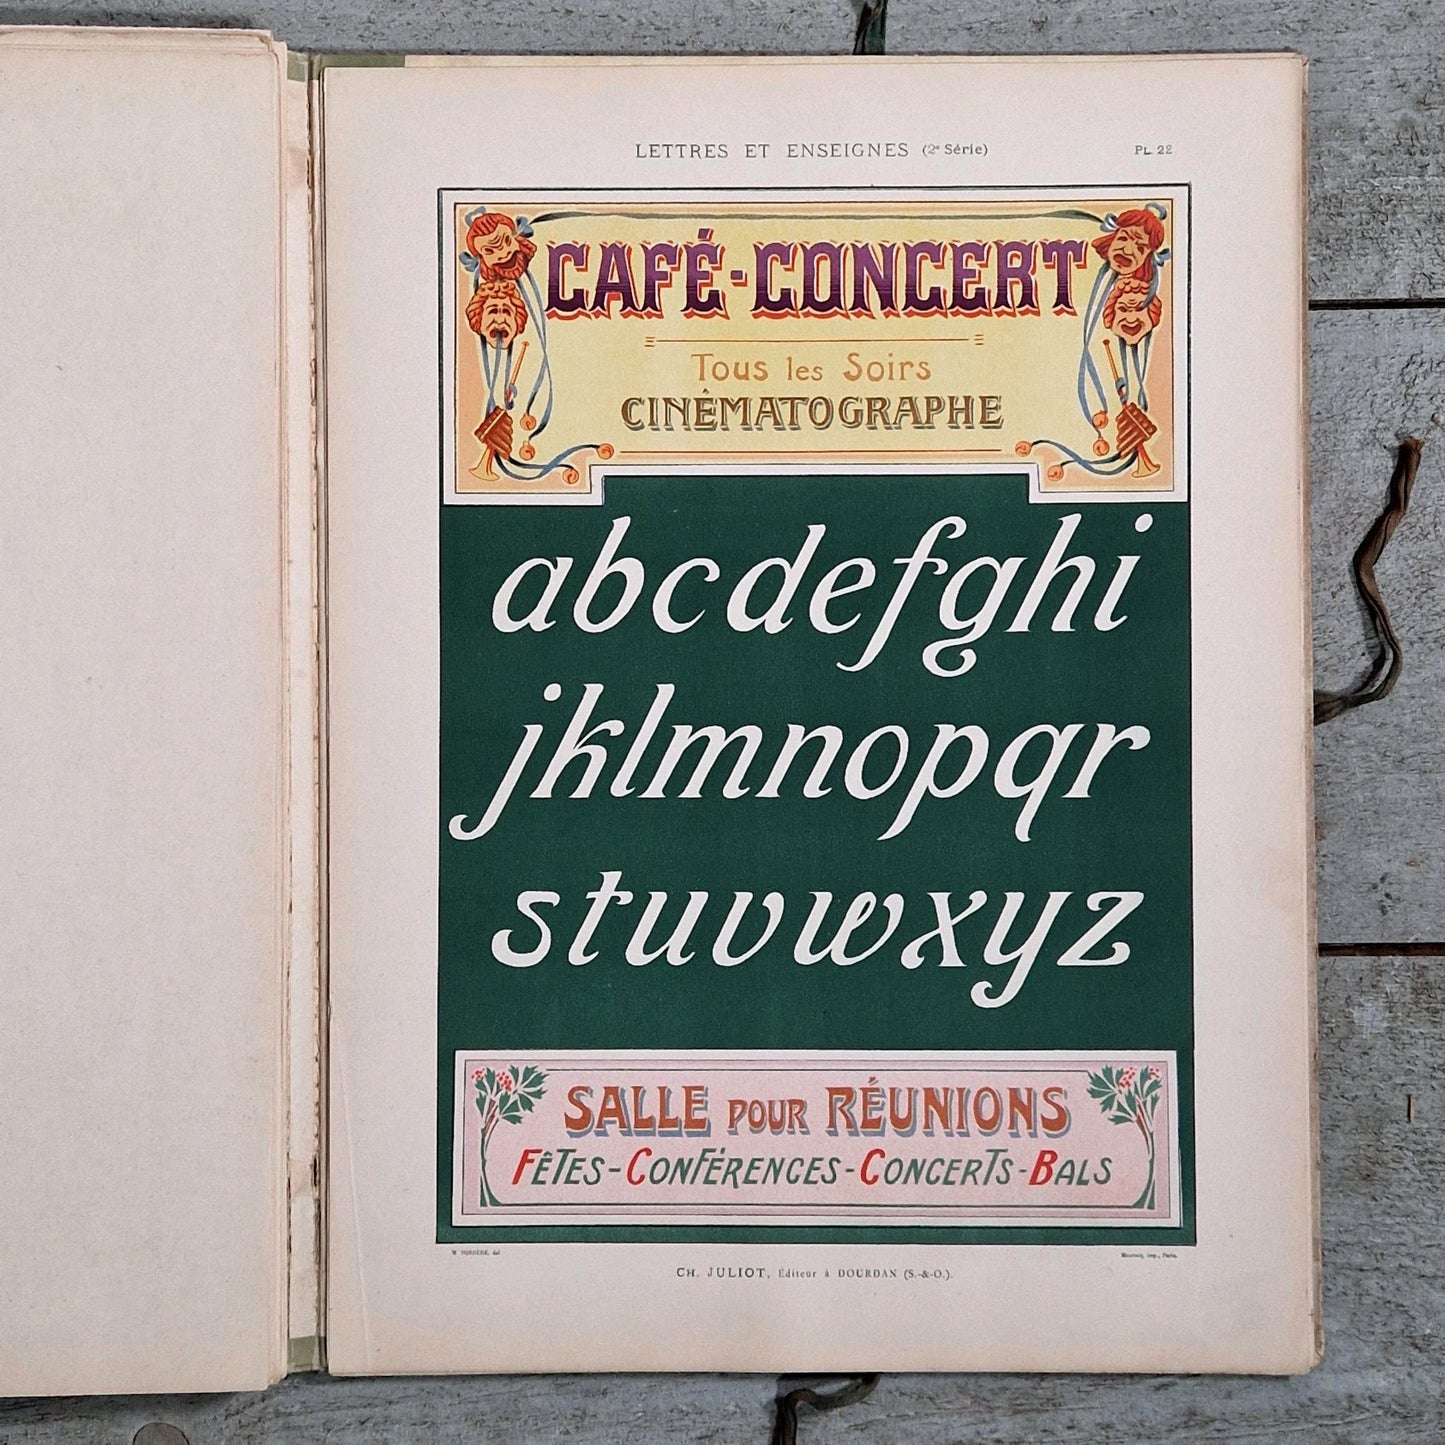 LETTRES ET ENSEIGNES (2e Série) PL. 22
CAFÉ-CONCERT
Tous les Soirs
CINÉMATOGRAPHE
abcdefghi
jklmnopqr
stuvwxyz
SALLE POUR RÉUNIONS
FÊTES-CONFÉRENCES-CONCERTS-BALS
imp., Paris.
CH. JULIOT, Éditeur à DOURDAN (S.-&-O.).